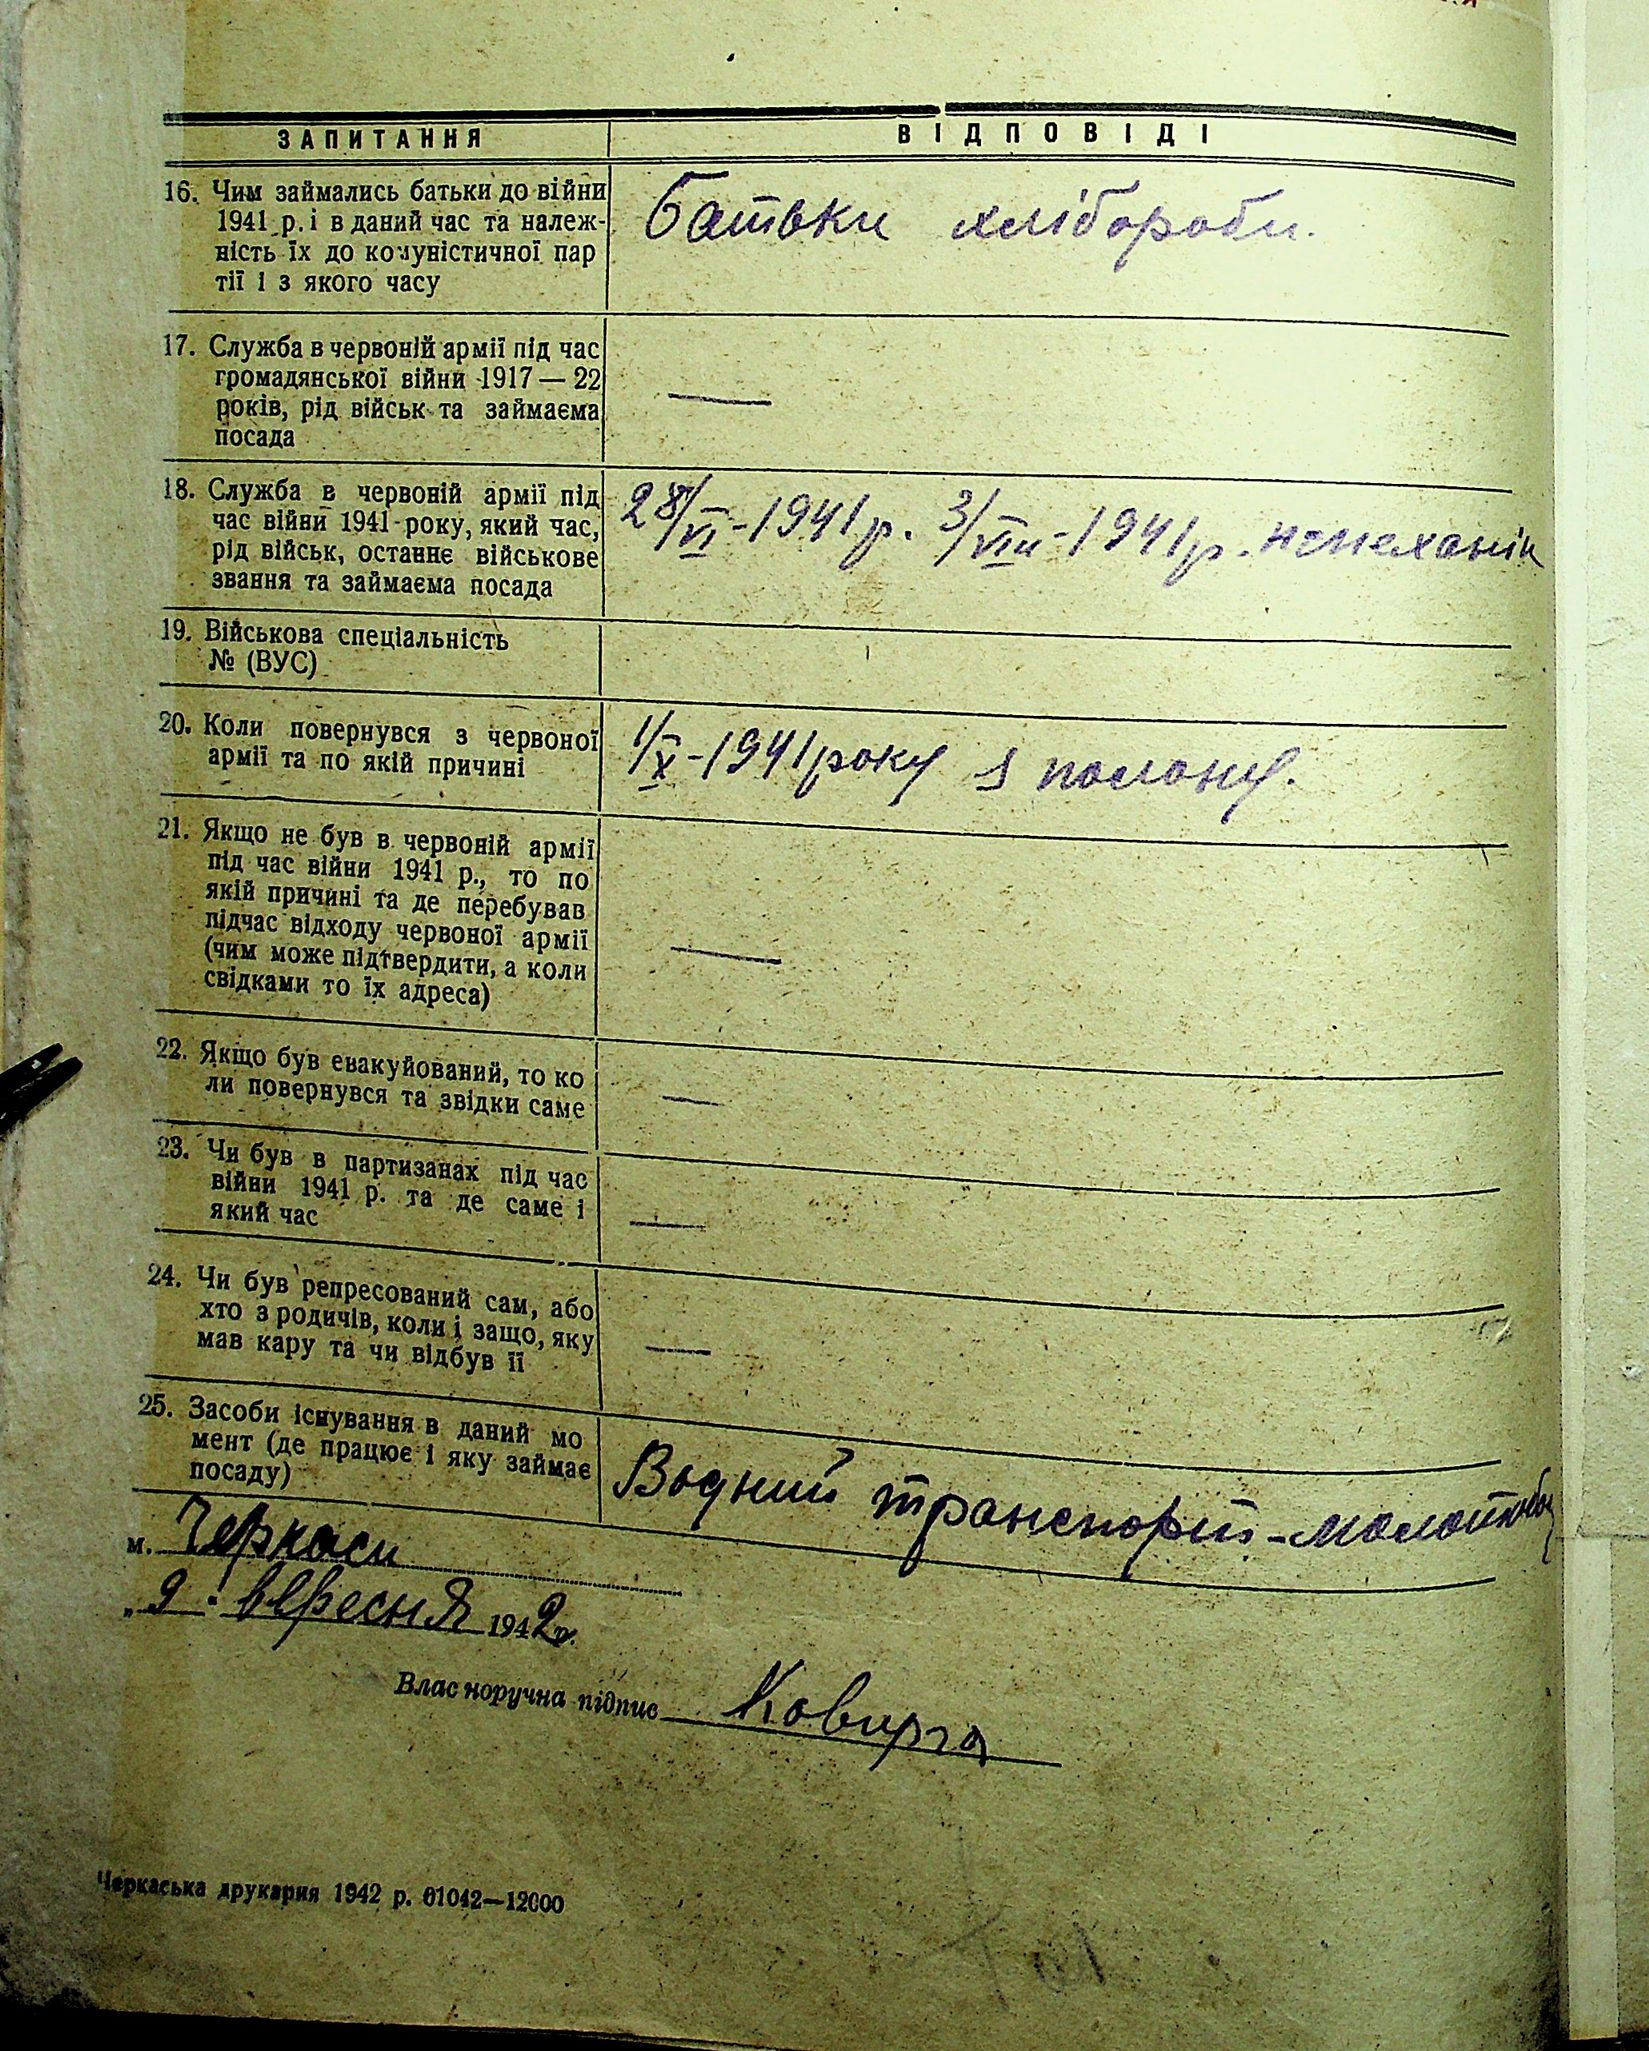 ЗАПИТАННЯ
ВІДПОВІДІ
16. Чим займались батьки до війни
1941 р. і в даний час та належ-
ність їх до комуністичної пар
тії і з якого часу
Батьки хлібороби.
17. Служба в червоній армії під час
громадянської війни 1917 — 22
років, рід військ та займаєма
посада
—
18. Служба в червоній армії під
час війни 1941 року, який час,
рід військ, останнє військове
звання та займаєма посада
28/VI-1941 р. 3/VIII-1941 р.
19. Військова спеціальність
№ (ВУС)
20. Коли повернувся з червоної
армії та по якій причині
1/X-1941 року з полону.
21. Якщо не був в червоній армії
під час війни 1941 р., то по
якій причині та де перебував
підчас відходу червоної армії
(чим може підтвердити, а коли
свідками то їх адреса)
—
22. Якщо був евакуйований, то ко
ли повернувся та звідки саме
—
23. Чи був в партизанах під час
війни 1941 р. та де саме і
який час
—
24. Чи був репресований сам, або
хто з родичів, коли і защо, яку
мав кару та чи відбув її
—
25. Засоби існування в даний мо
мент (де працює і яку займає
посаду)
Водний транспорт - молотобоєць
м. Черкаси
„ 9 . вересня 1942 р.
Власноручна підпис Ковирга
Черкаська друкарня 1942 р. 01042—12000